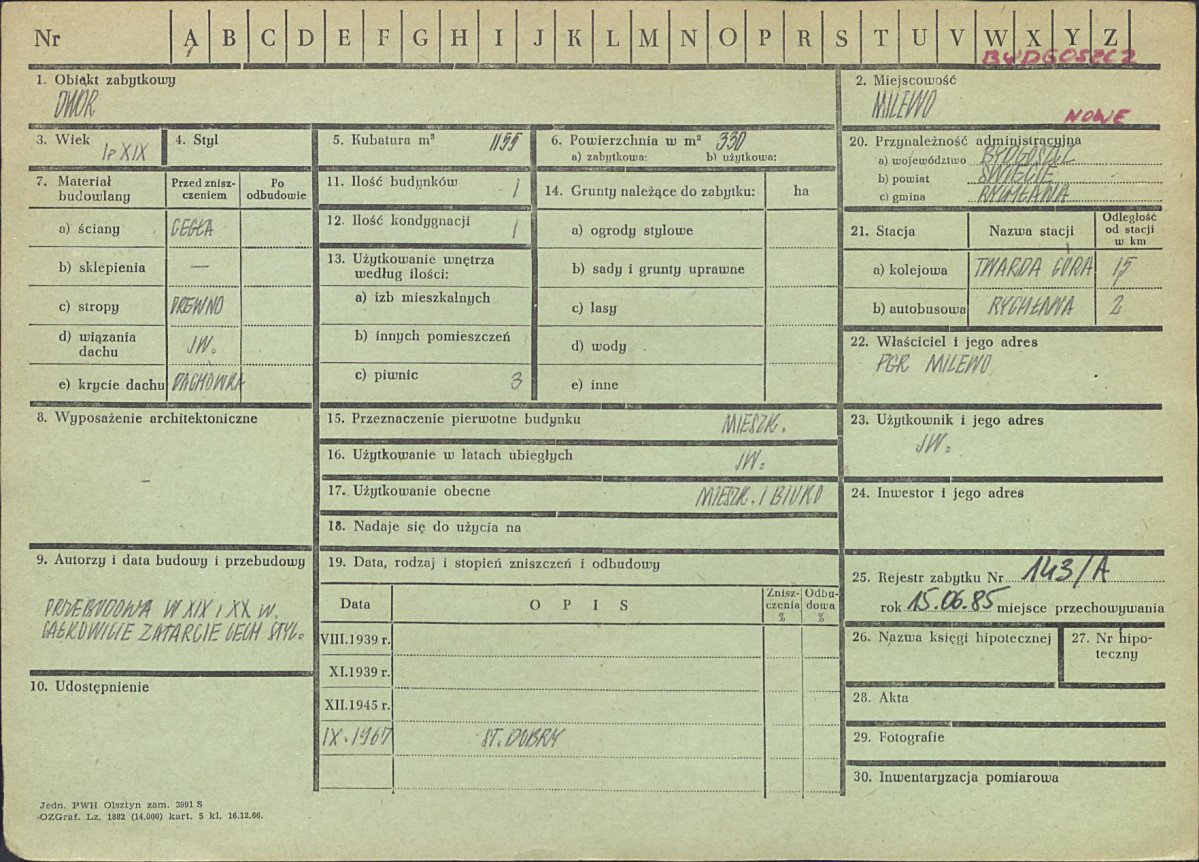 Nr A B C D E F G H I J K L M N O P R S T U V W X Y Z
BYDGOSZCZ
1. Obiekt zabytkowy
DWÓR
2. Miejscowość
MILEWO
NOWE
3. Wiek
I p XIX
4. Styl
5. Kubatura m³ 1155
6. Powierzchnia w m² 330
a) zabytkowa: b) użytkowa:
20. Przynależność administracyjna
a) województwo BYDGOSZCZ
b) powiat ŚWIECIE
c) gmina RYCHŁAWA
7. Materiał budowlany
Przed zniszczeniem
Po odbudowie
a) ściany CEGŁA
b) sklepienia —
c) stropy DREWNO
d) wiązania dachu JW.
e) krycie dachu DACHÓWKA
11. Ilość budynków 1
12. Ilość kondygnacji 1
13. Użytkowanie wnętrza według ilości:
a) izb mieszkalnych
b) innych pomieszczeń
c) piwnic 3
14. Grunty należące do zabytku: ha
a) ogrody stylowe
b) sady i grunty uprawne
c) lasy
d) wody
e) inne
21. Stacja
Nazwa stacji
Odległość od stacji w km
a) kolejowa TWARDA GÓRA 15
b) autobusowa RYCHŁAWA 2
22. Właściciel i jego adres
PGR MILEWO
8. Wyposażenie architektoniczne
–
15. Przeznaczenie pierwotne budynku MIESZK.
16. Użytkowanie w latach ubiegłych JW.
17. Użytkowanie obecne MIESZK. I BIURO
18. Nadaje się do użycia na
23. Użytkownik i jego adres
JW.
24. Inwestor i jego adres
9. Autorzy i data budowy i przebudowy
PRZEBUDOWA W XIX I XX W.
CAŁKOWICIE ZATARCIE CECH STYL.
10. Udostępnienie
19. Data, rodzaj i stopień zniszczeń i odbudowy
Data
O P I S
Zniszczenia %
Odbudowa %
VIII.1939 r.
XI.1939 r.
XII.1945 r.
IX.1967 ST. DOBRY
25. Rejestr zabytku Nr 143/A
rok 15.06.85 miejsce przechowywania
26. Nazwa księgi hipotecznej
27. Nr hipoteczny
28. Akta
29. Fotografie
30. Inwentaryzacja pomiarowa
Jedn. PWH Olsztyn zam. 3991 S
OZGraf. Lz. 1882 (14.000) kart. 5 kl. 16.12.66.